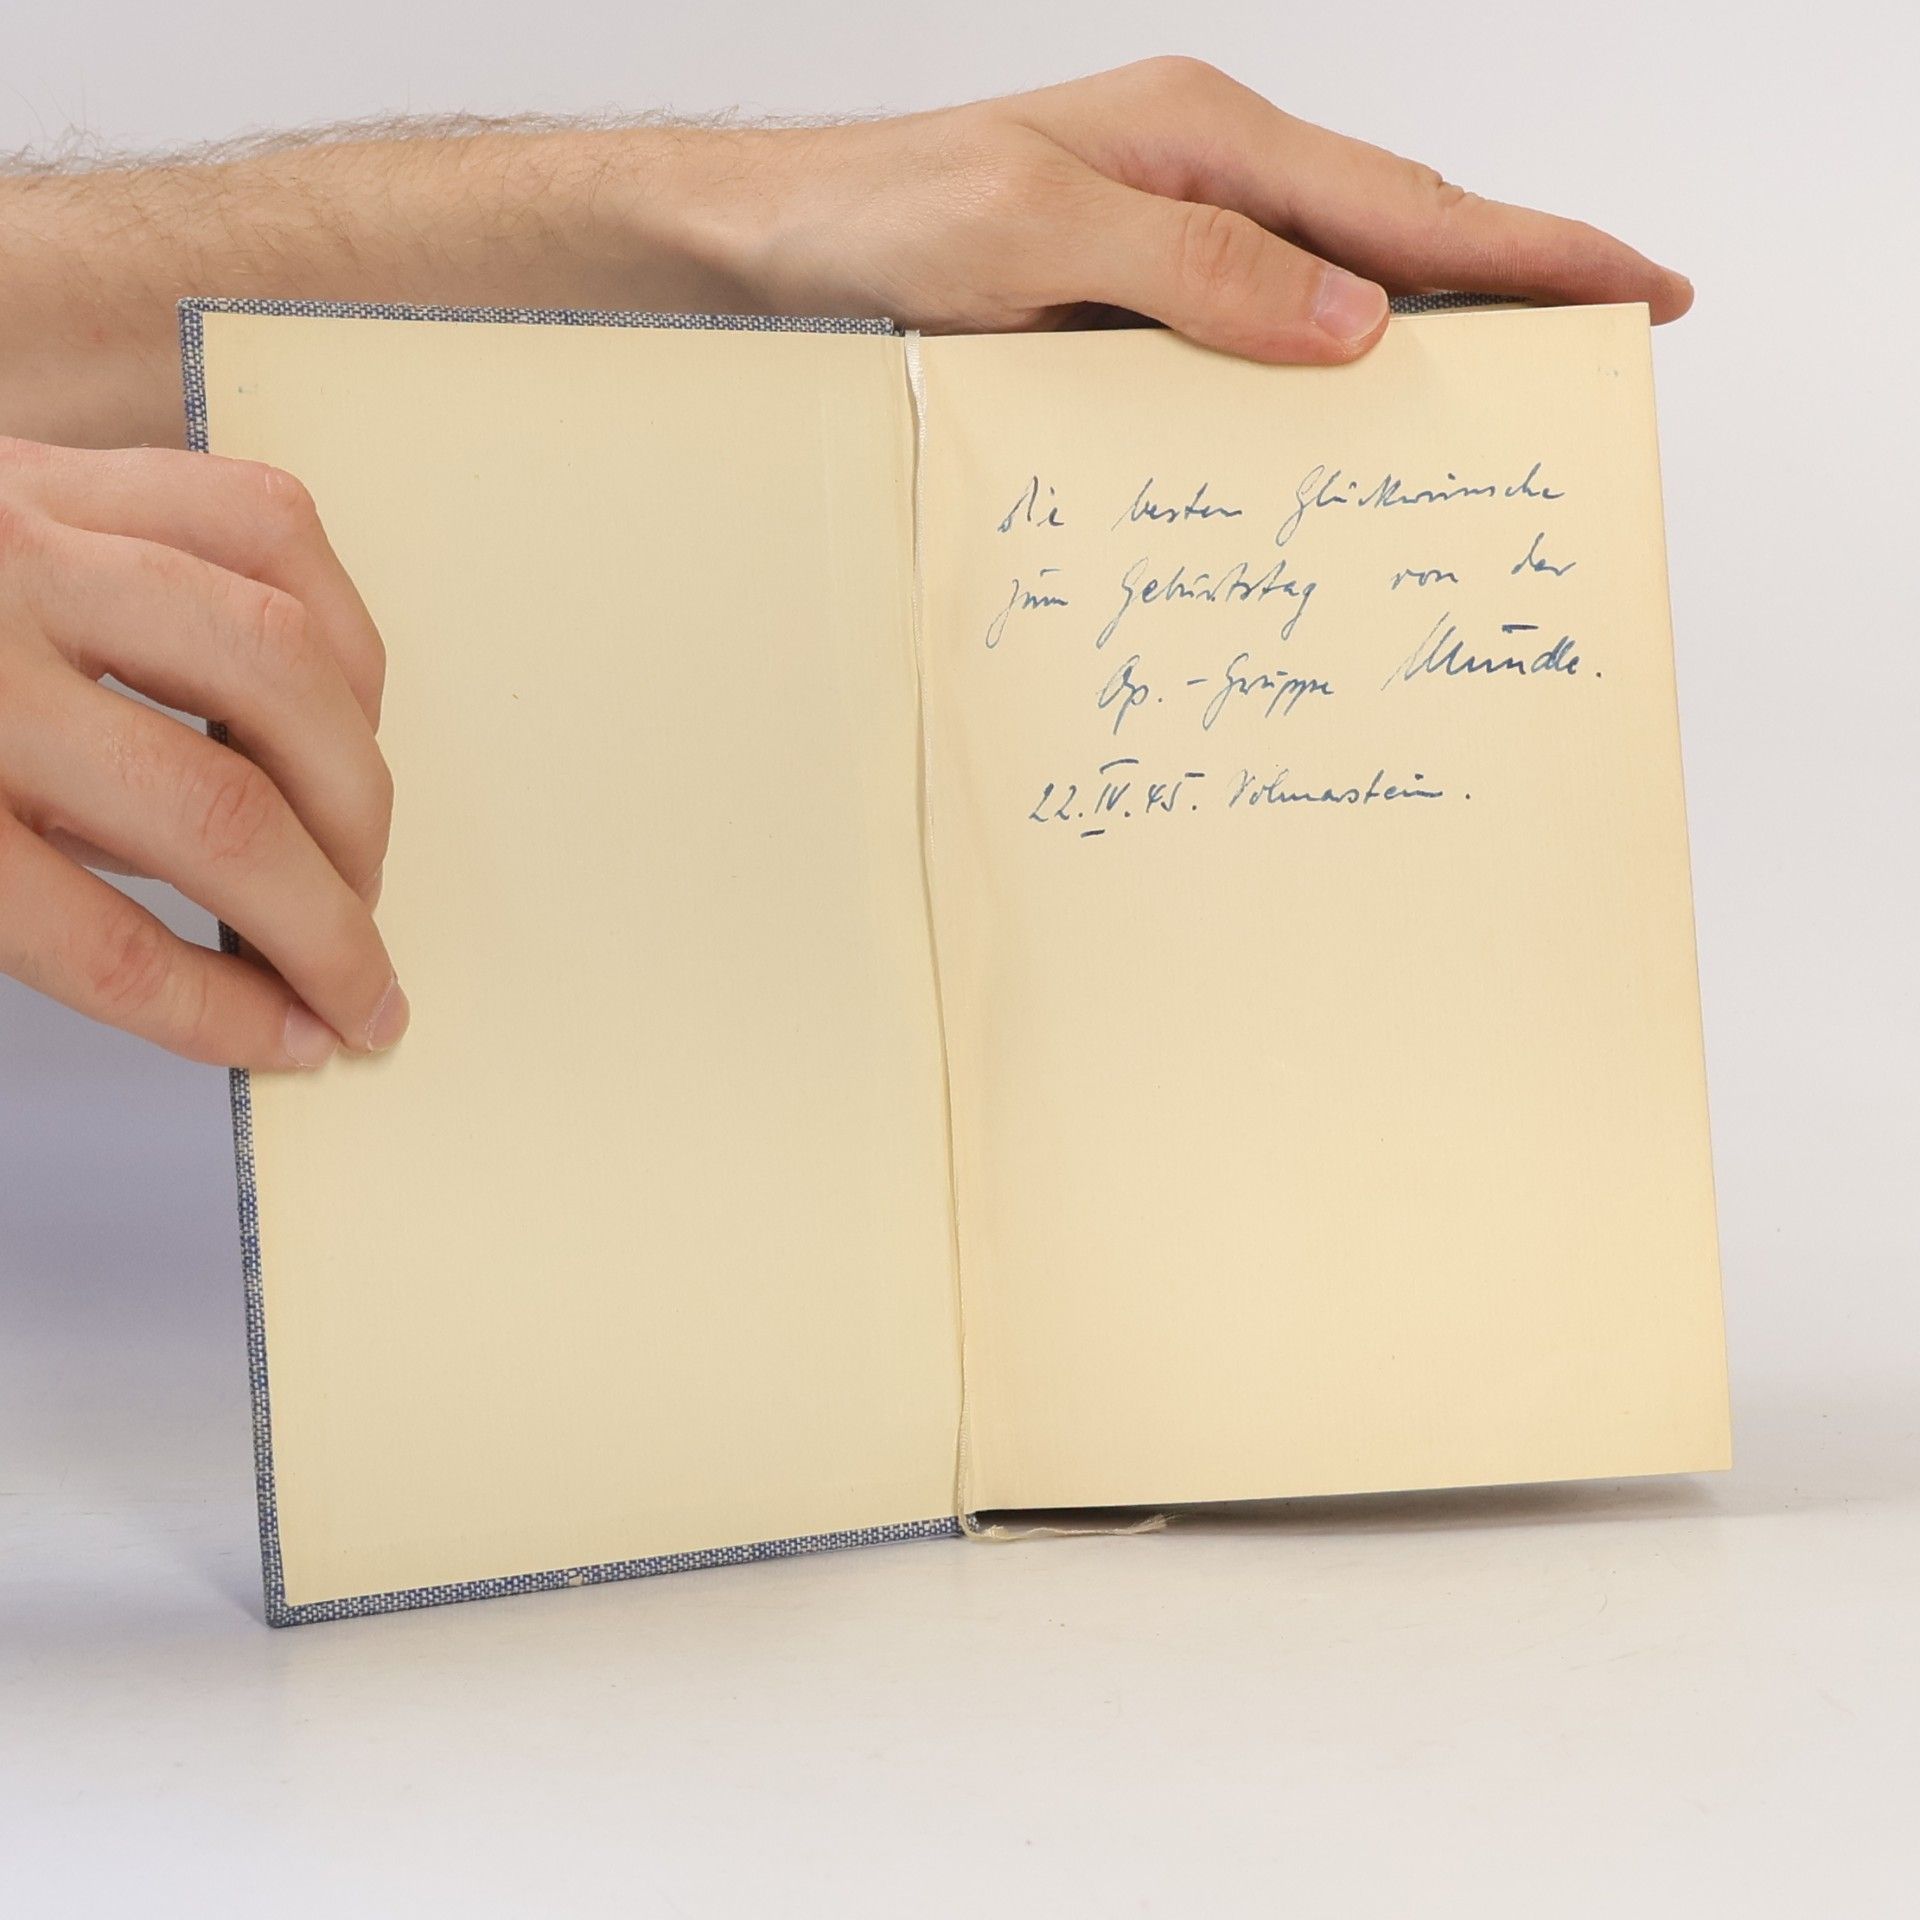 Die besten Glückwünsche
zum Geburtstag von der
Op.-Gruppe Mundle.
22.IV.45. Volmarstein.